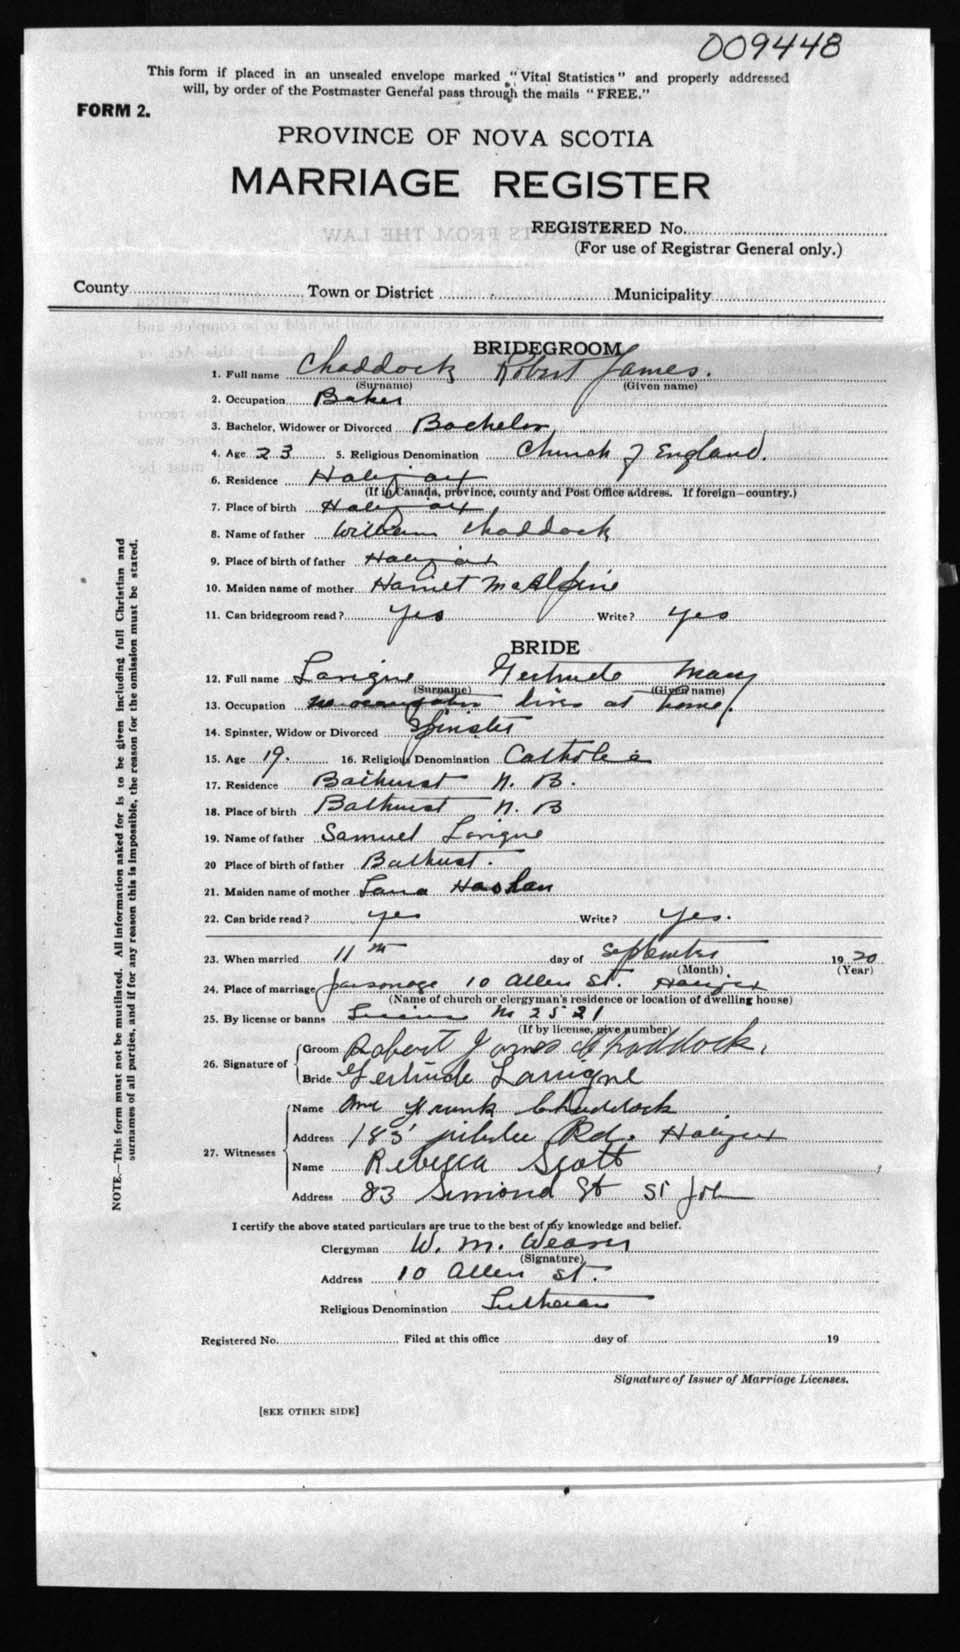 009448
This form if placed in an unsealed envelope marked "Vital Statistics" and properly addressed
will, by order of the Postmaster General pass through the mails "FREE."
FORM 2.
PROVINCE OF NOVA SCOTIA
MARRIAGE REGISTER
REGISTERED No.
(For use of Registrar General only.)
County Town or District Municipality
BRIDEGROOM
1. Full name Chaddock Robert James.
(Surname) (Given name)
2. Occupation Baker
3. Bachelor, Widower or Divorced Bachelor
4. Age 23 5. Religious Denomination Church of England.
6. Residence Halifax
(If in Canada, province, county and Post Office address. If foreign—country.)
7. Place of birth Halifax
8. Name of father William Chaddock
9. Place of birth of father Halifax
10. Maiden name of mother Harriet McAlpine
11. Can bridegroom read? Yes Write? Yes
BRIDE
12. Full name Lavigne Gertrude Mary
(Surname) (Given name)
13. Occupation no occupation lives at home.
14. Spinster, Widow or Divorced Spinster
15. Age 19. 16. Religious Denomination Catholic
17. Residence Bathurst N. B.
18. Place of birth Bathurst N. B
19. Name of father Samuel Lavigne
20 Place of birth of father Bathurst.
21. Maiden name of mother Lana
22. Can bride read? yes Write? Yes.
23. When married 11th day of September 1920
(Month) (Year)
24. Place of marriage parsonage 10 Allen St. Halifax
(Name of church or clergyman's residence or location of dwelling house)
25. By license or banns License No 2521
(If by license, give number)
26. Signature of Groom Robert James Chaddock.
Bride Gertrude Lavigne
27. Witnesses Name Frank Chaddock
Address 183 Jubilee Rd. Halifax
Name Rebecca Scott
Address 83 Simond St St John
I certify the above stated particulars are true to the best of my knowledge and belief.
Clergyman W. M. Weaver
(Signature)
Address 10 Allen St.
Religious Denomination Lutheran
Registered No. Filed at this office day of 19
Signature of Issuer of Marriage Licenses.
[SEE OTHER SIDE]
NOTE.—This form must not be mutilated. All information asked for is to be given including full Christian and
surnames of all parties, and if for any reason this is impossible, the reason for the omission must be stated.